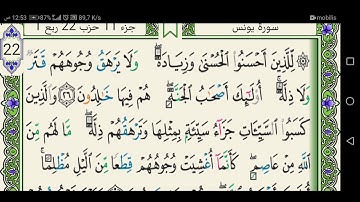 12:53 ص 87% 89,7 K/s mobilis
سورة يونس جزء 11 حزب 22 ربع 1
22
۞ لِّلَّذِينَ أَحْسَنُوا۟ ٱلْحُسْنَىٰ وَزِيَادَةٌۭ ۖ وَلَا يَرْهَقُ وُجُوهَهُمْ قَتَرٌۭ
وَلَا ذِلَّةٌ ۚ أُو۟لَٰٓئِكَ أَصْحَٰبُ ٱلْجَنَّةِ ۖ هُمْ فِيهَا خَٰلِدُونَ ٢٦ وَٱلَّذِينَ
كَسَبُوا۟ ٱلسَّيِّـَٔاتِ جَزَآءُ سَيِّئَةٍۭ بِمِثْلِهَا وَتَرْهَقُهُمْ ذِلَّةٌۭ ۖ مَّا لَهُم مِّنَ
ٱللَّهِ مِنْ عَاصِمٍۢ ۖ كَأَنَّمَآ أُغْشِيَتْ وُجُوهُهُمْ قِطَعًۭا مِّنَ ٱلَّيْلِ مُظْلِمًا ۚ